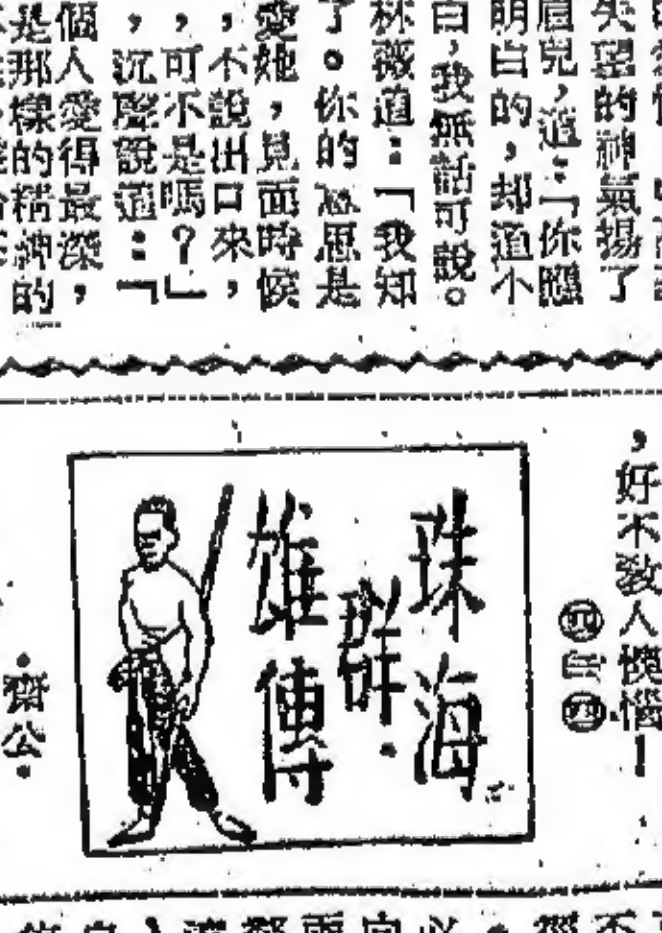 失望的神氣揚了
眉兒，道：「你
明白的，却道不
白，我無話可說。
林薇道：「我知
了。你的意思是
愛她，見面時候
，不說出口來，
，可不是嗎？」
，沉聲說道：「
個人愛得最深，
是那樣的精神的
，好不教人懊惱！
珠海
群
雄傳
·齋公·